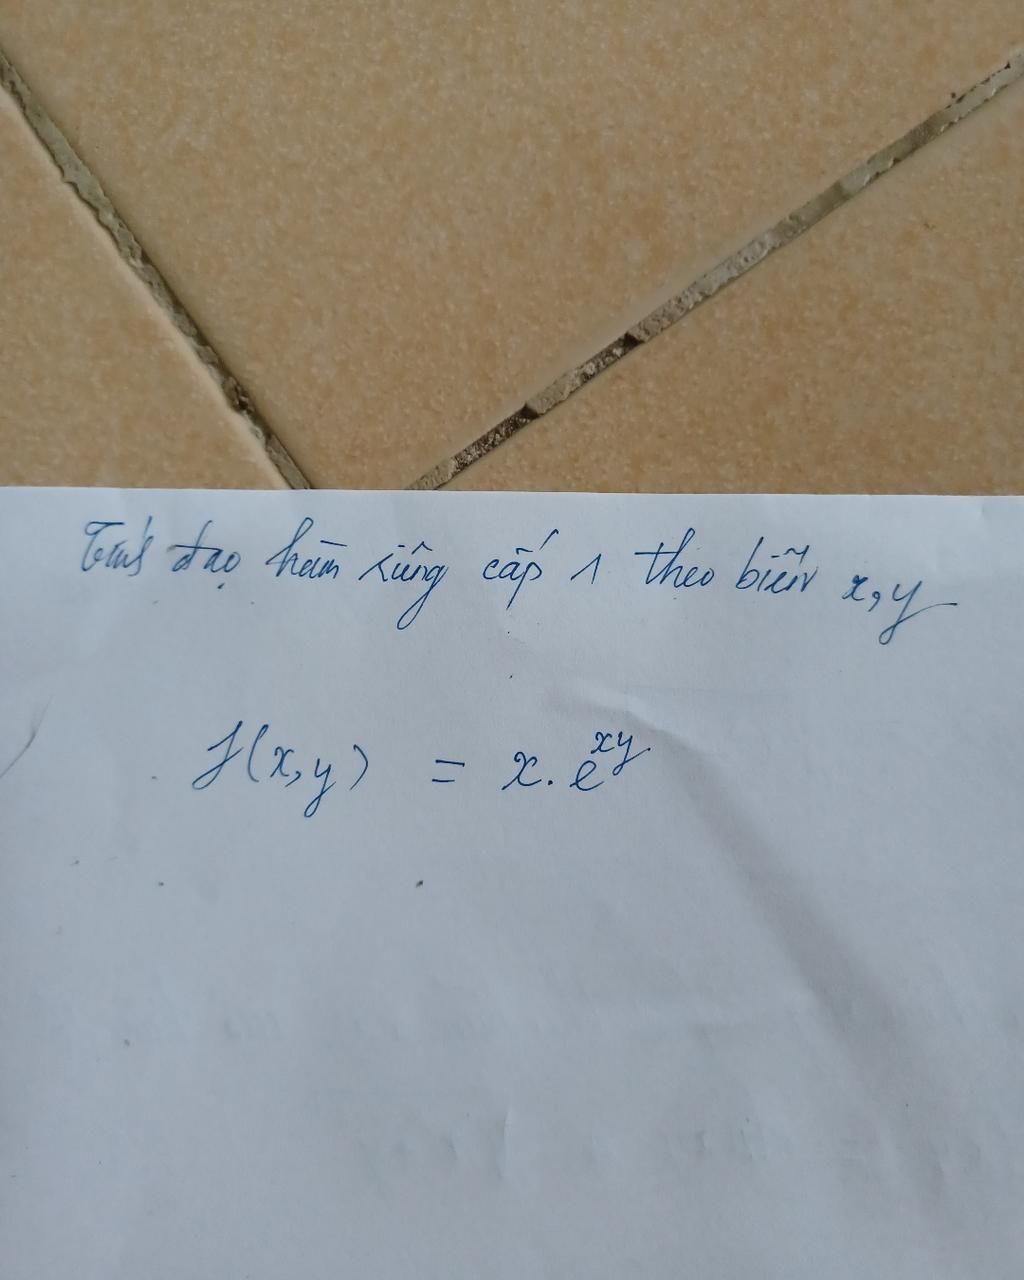 Tính đạo hàm riêng cấp 1 theo biến x, y
f(x,y) = x. e^xy